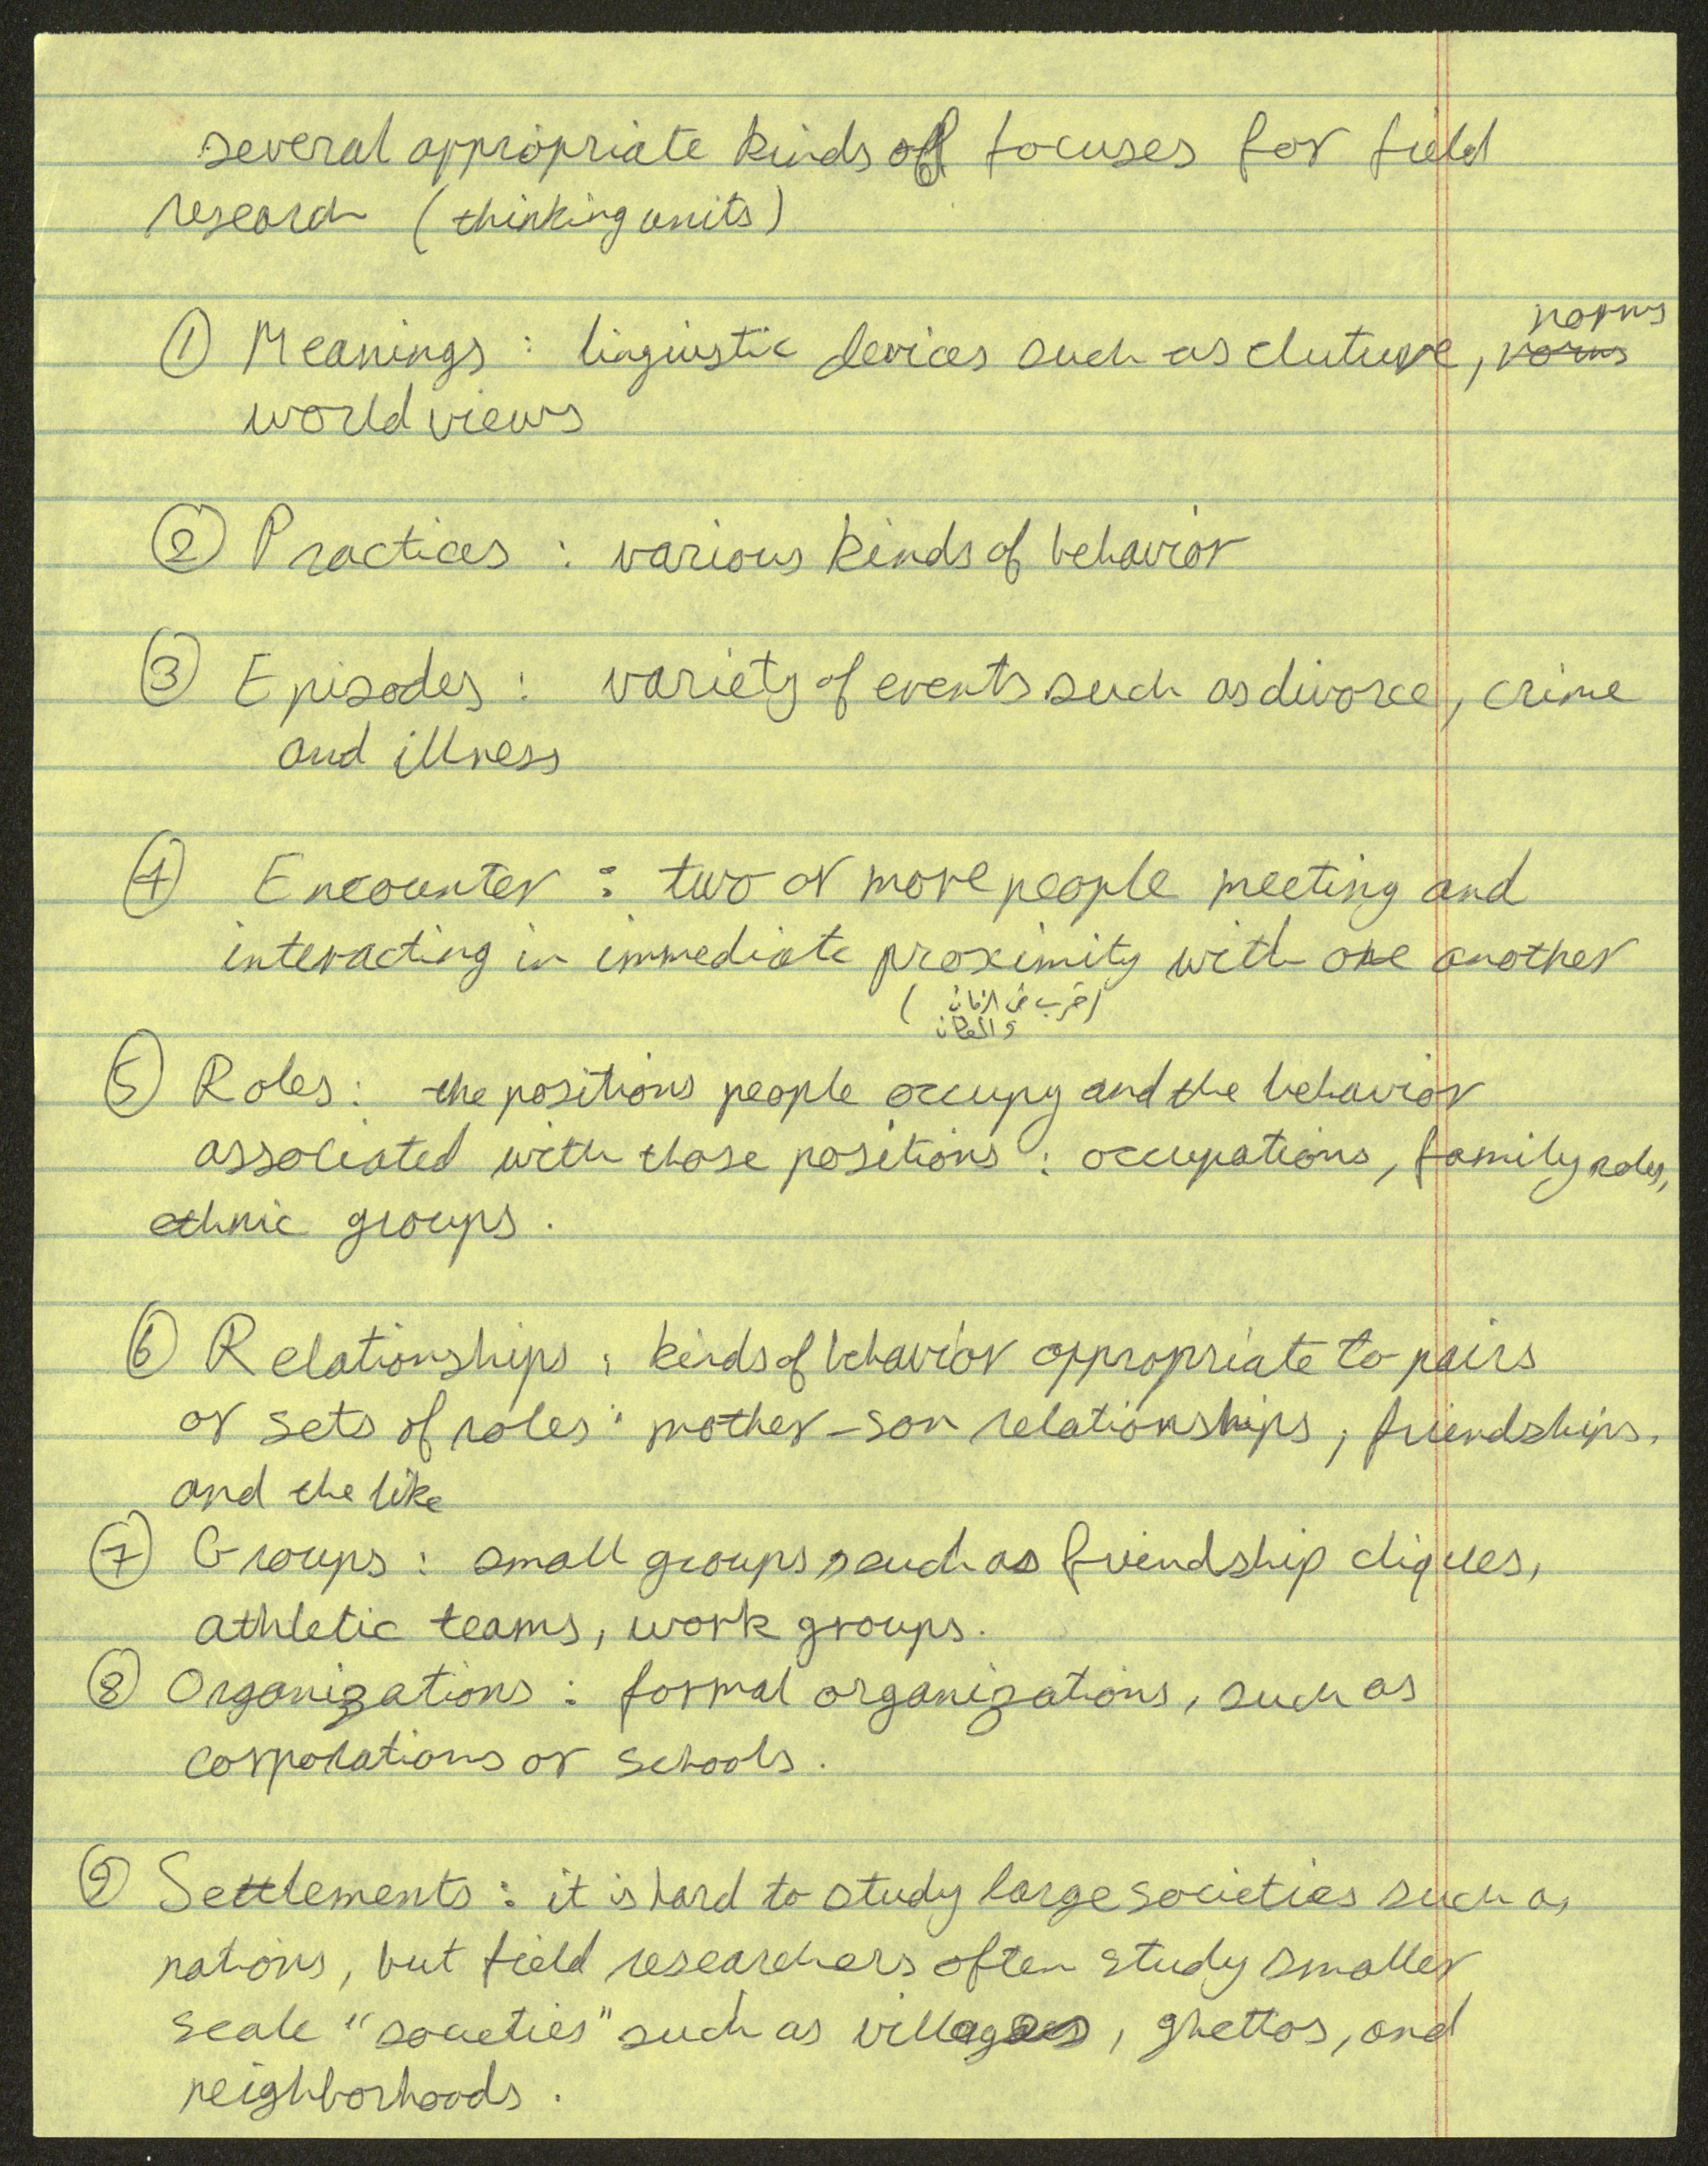 several appropriate kinds of focuses for field
research (thinking units)
norms
① Meanings : linguistic devices such as cluture, norms
world views
② Practices : various kinds of behavior
③ Episodes : variety of events such as divorce, crime
and illness
④ Encounter : two or more people meeting and
interacting in immediate proximity with one another
(قرب في الزمان
و المكان)
⑤ Roles : the positions people occupy and the behavior
associated with those positions : occupations, family roles,
ethnic groups.
⑥ Relationships : kinds of behavior appropriate to pairs
or sets of roles : mother-son relationships, friendships,
and the like
⑦ Groups : small groups such as friendship cliques,
athletic teams, work groups.
⑧ Organizations : formal organizations, such as
corporations or schools.
⑨ Settlements : it is hard to study large societies such as
nations, but field researchers often study smaller
scale "societies" such as villages, ghettos, and
neighborhoods.